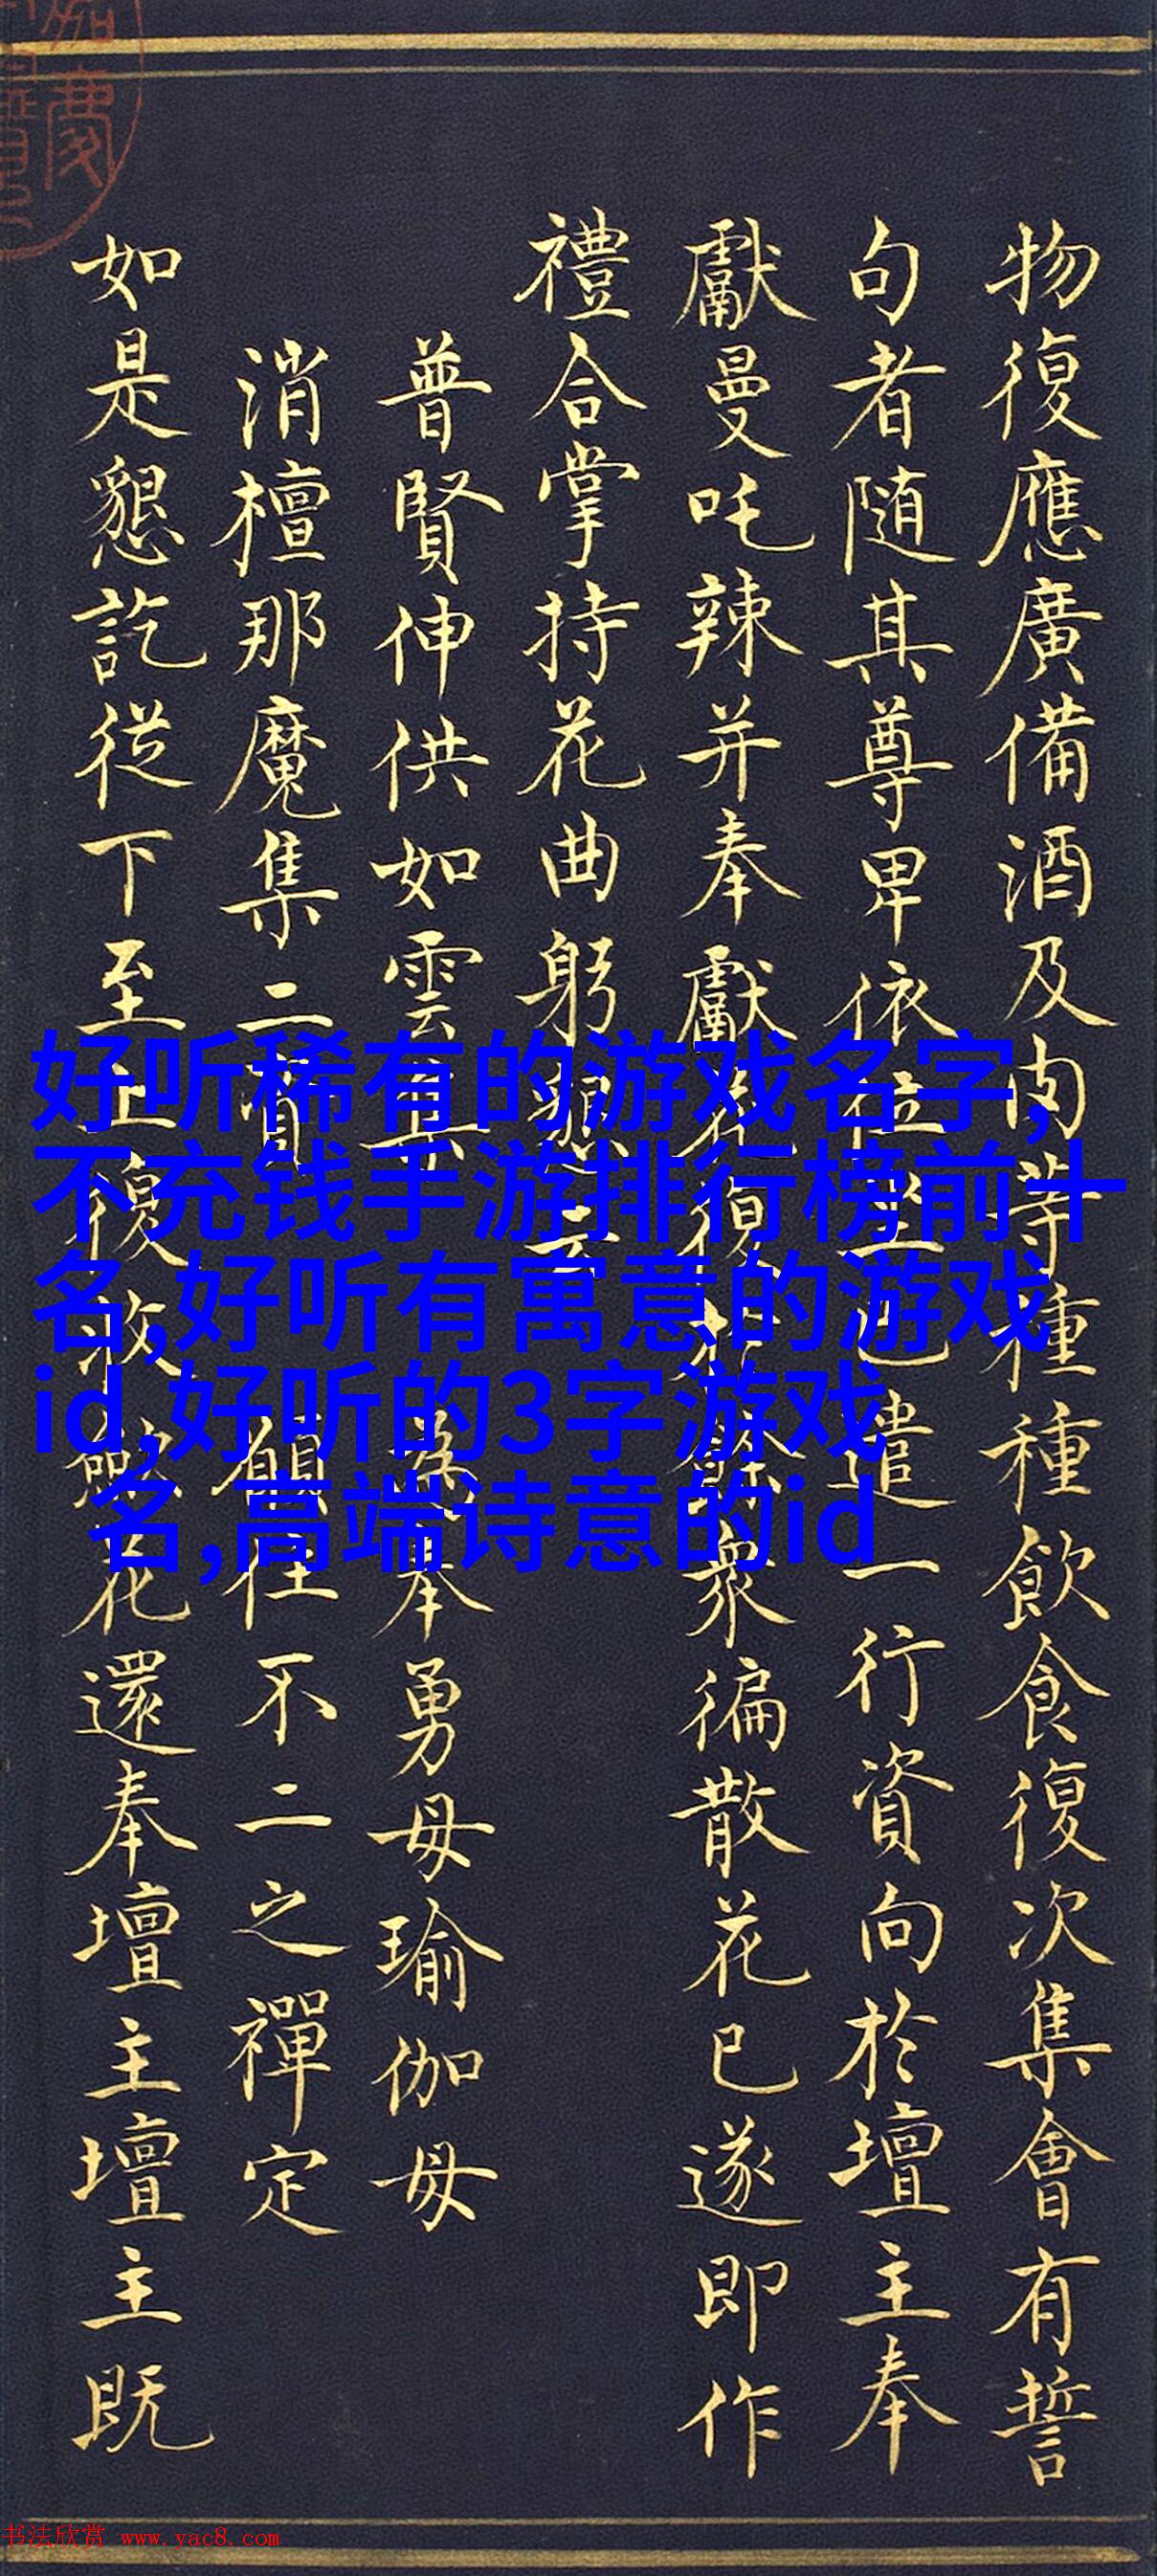 物復應廣備酒及肉等種種飲食復次集會有誓
句者随其尊卑依位坐已遣一行資向於壇主奉
獻曼吒辣并奉獻花復於餘衆徧散花已遂即作
禮合掌持花曲躬懇云
普賢伸供如雲集 為奉勇母瑜伽母
消檀那魔集二資 願住不二之禪定
如是懇訖從下至上復散 花還奉壇主壇主既
好听稀有的游戏名字,
不充钱手游排行榜前十
名,好听有寓意的游戏
id,好听的3字游戏
名,高端诗意的id
书法欣赏 www.yac8.com